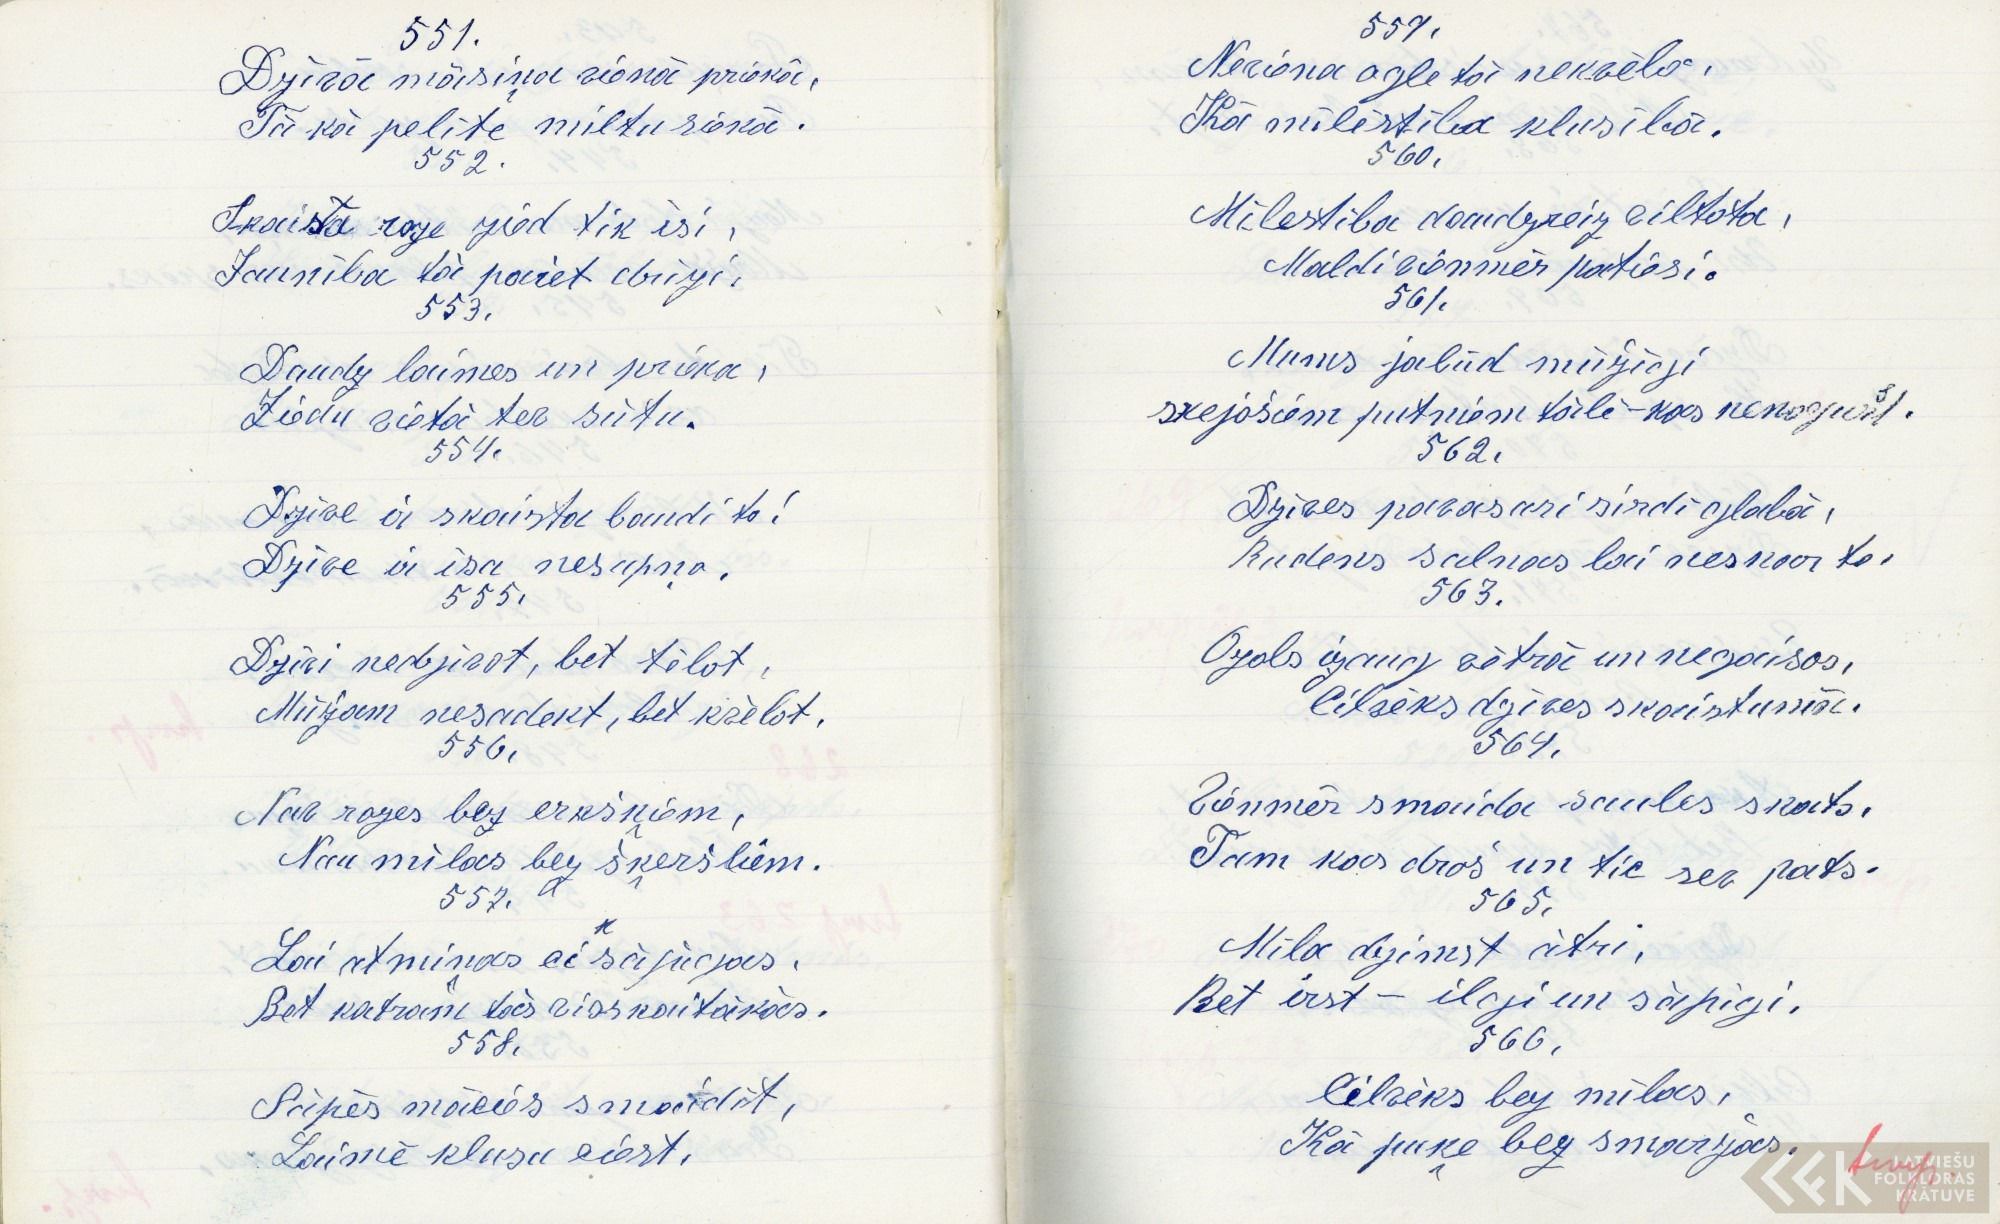 551.
Dzīvā māsiņa vienā priekā,
Tā kā pelīte miltu siekā.
552.
Skaista roze zied tik īsi,
Jaunība tā paiet drīzi.
553.
Daudz laimes un prieka,
Ziedu vietā tev sūtu.
554.
Dzīve ir skaista baudi to!
Dzīve ir īsa nesapņo.
555.
Dzīvi nedzīvot, bet tēlot,
Mūžam nesadekt, bet kvēlot.
556.
Nav rozes bez ērkšķiem,
Nav mīlas bez šķēršļiem.
557.
Lai atmiņas ir sāpīgas.
Bet katram tās visskaistākās.
558.
Sāpēs mācies smaidīt,
Laimē klusu ciest.
559.
Neviena ogle tā nekvēlo,
Kā mīlestība klusībā.
560.
Mīlestība daudzreiz viltota,
Maldi vienmēr patiesi.
561.
Mums jabūd mūžīgi
skejošiem putniem tālē-kas nenogurst.
562.
Dzīves pavasari sirdī glabā,
Rudens salnas lai neskar to.
563.
Ozols izaug vētrā un negaisos,
Cilvēks dzīves skaistumā.
564.
Vienmēr smaida saules skats,
Tam kas drošs un tic sev pats.
565.
Mīla dzimst ātri,
Bet irst - ilgi un sāpīgi.
566.
Cilvēks bez mīlas,
Kā puķe bez smaržas.
LATVIEŠU
FOLKLORAS
KRĀTUVE